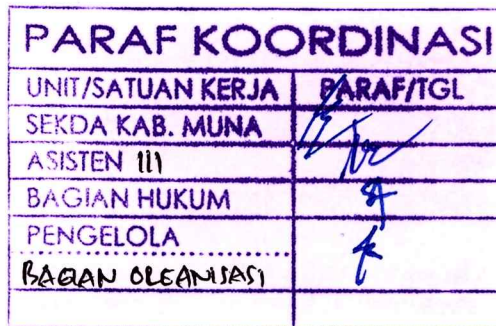 PARAF KOORDINASI
UNIT/SATUAN KERJA PARAF/TGL
SEKDA KAB. MUNA
ASISTEN III
BAGIAN HUKUM
PENGELOLA
BAGIAN ORGANISASI